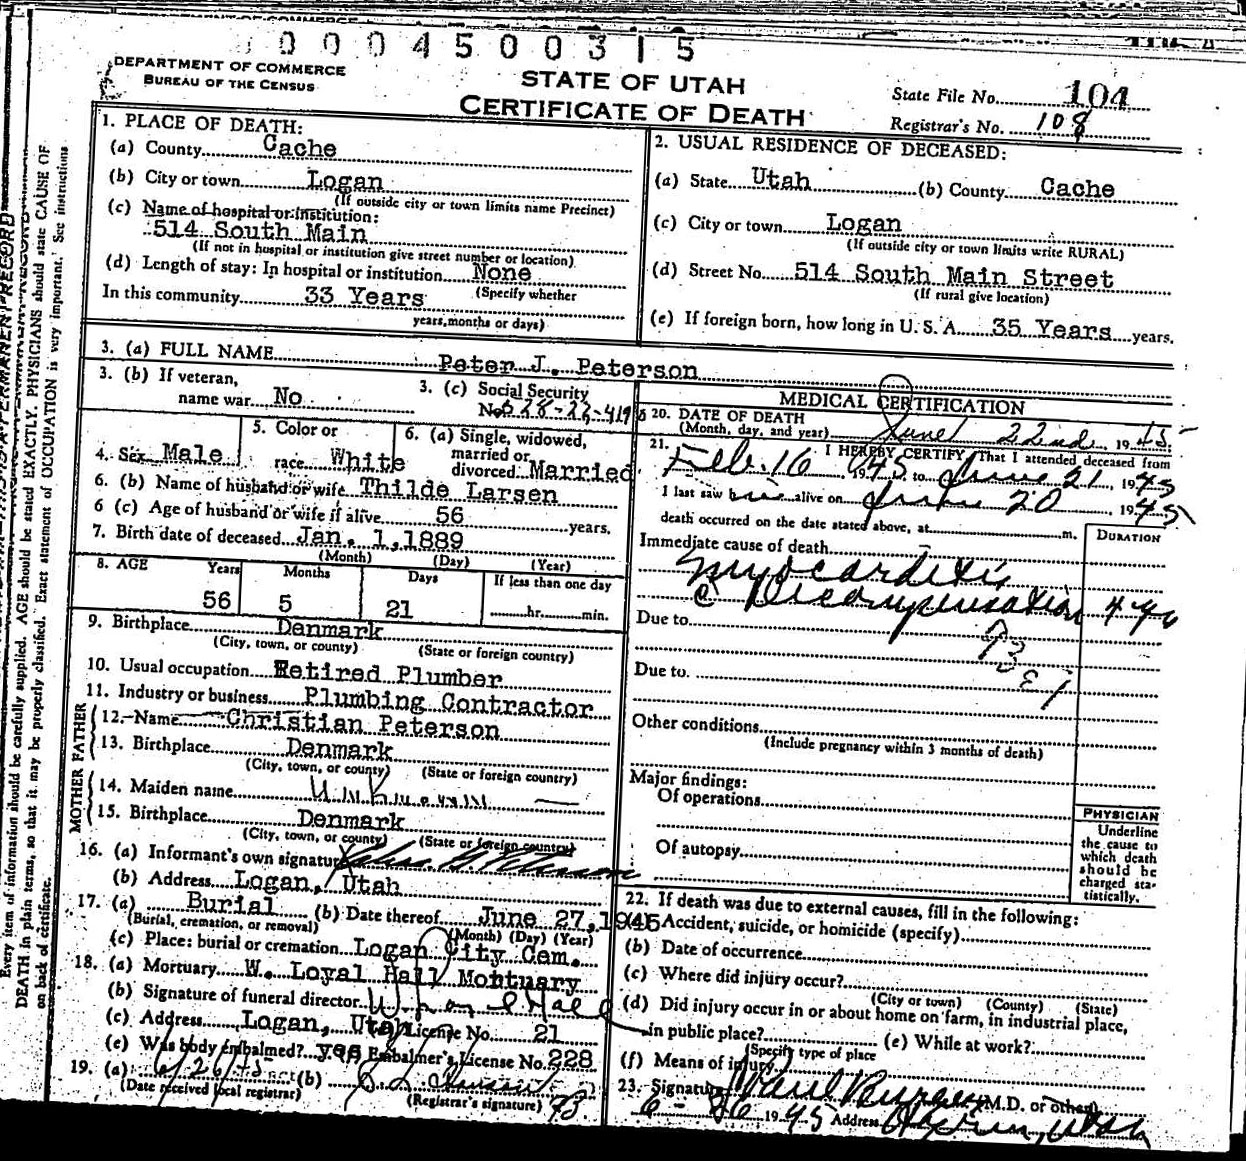 0004500315
DEPARTMENT OF COMMERCE
BUREAU OF THE CENSUS
STATE OF UTAH
CERTIFICATE OF DEATH
State File No. 104
Registrar's No. 108
1. PLACE OF DEATH:
(a) County Cache
(b) City or town Logan
(If outside city or town limits name Precinct)
(c) Name of hospital or institution:
514 South Main
(If not in hospital or institution give street number or location)
(d) Length of stay: In hospital or institution None
(Specify whether
In this community 33 Years
years, months or days)
2. USUAL RESIDENCE OF DECEASED:
(a) State Utah (b) County Cache
(c) City or town Logan
(If outside city or town limits write RURAL)
(d) Street No. 514 South Main Street
(If rural give location)
(e) If foreign born, how long in U. S. A. 35 Years years.
3. (a) FULL NAME Peter J. Peterson
3. (b) If veteran,
name war No
3. (c) Social Security
No. 528-22-419
4. Sex Male
5. Color or
race White
6. (a) Single, widowed,
married or
divorced Married
6. (b) Name of husband or wife Thilde Larsen
6 (c) Age of husband or wife if alive 56 years.
7. Birth date of deceased Jan. 1, 1889
(Month) (Day) (Year)
8. AGE Years Months Days If less than one day
56 5 21 hr. min.
9. Birthplace Denmark
(City, town, or county) (State or foreign country)
10. Usual occupation Retired Plumber
11. Industry or business Plumbing Contractor
MOTHER FATHER
12. Name Christian Peterson
13. Birthplace Denmark
(City, town, or county) (State or foreign country)
14. Maiden name Unknown
15. Birthplace Denmark
(City, town, or county) (State or foreign country)
16. (a) Informant's own signature
(b) Address Logan, Utah
17. (a) Burial (b) Date thereof June 27, 1945
(Burial, cremation, or removal) (Month) (Day) (Year)
(c) Place: burial or cremation Logan City Cem.
18. (a) Mortuary W. Loyal Hall Mortuary
(b) Signature of funeral director W. Loyal Hall
(c) Address Logan, Utah License No. 21
(e) Was body embalmed? yes Embalmer's License No. 228
19. (a) 6/26/45 (b)
(Date received local registrar) (Registrar's signature)
MEDICAL CERTIFICATION
20. DATE OF DEATH
(Month, day, and year) June 22nd, 1945
21. I HEREBY CERTIFY, That I attended deceased from
Feb. 16 1945 to June 21, 1945
I last saw him alive on June 20 1945
death occurred on the date stated above, at m.
DURATION
Immediate cause of death
Myocarditis
c Decompensation
Due to
Due to
Other conditions
(Include pregnancy within 3 months of death)
Major findings:
Of operations
Of autopsy
PHYSICIAN
Underline
the cause to
which death
should be
charged sta-
tistically.
22. If death was due to external causes, fill in the following:
(a) Accident, suicide, or homicide (specify)
(b) Date of occurrence
(c) Where did injury occur?
(City or town) (County) (State)
(d) Did injury occur in or about home on farm, in industrial place,
in public place? (e) While at work?
(Specify type of place
(f) Means of injury
23. Signature (M.D. or other)
6-26 1945 Address Utah
Every item of information should be carefully supplied. AGE should be stated EXACTLY. PHYSICIANS should state CAUSE OF
DEATH in plain terms, so that it may be properly classified. Exact statement of OCCUPATION is very important. See instructions
on back of certificate.